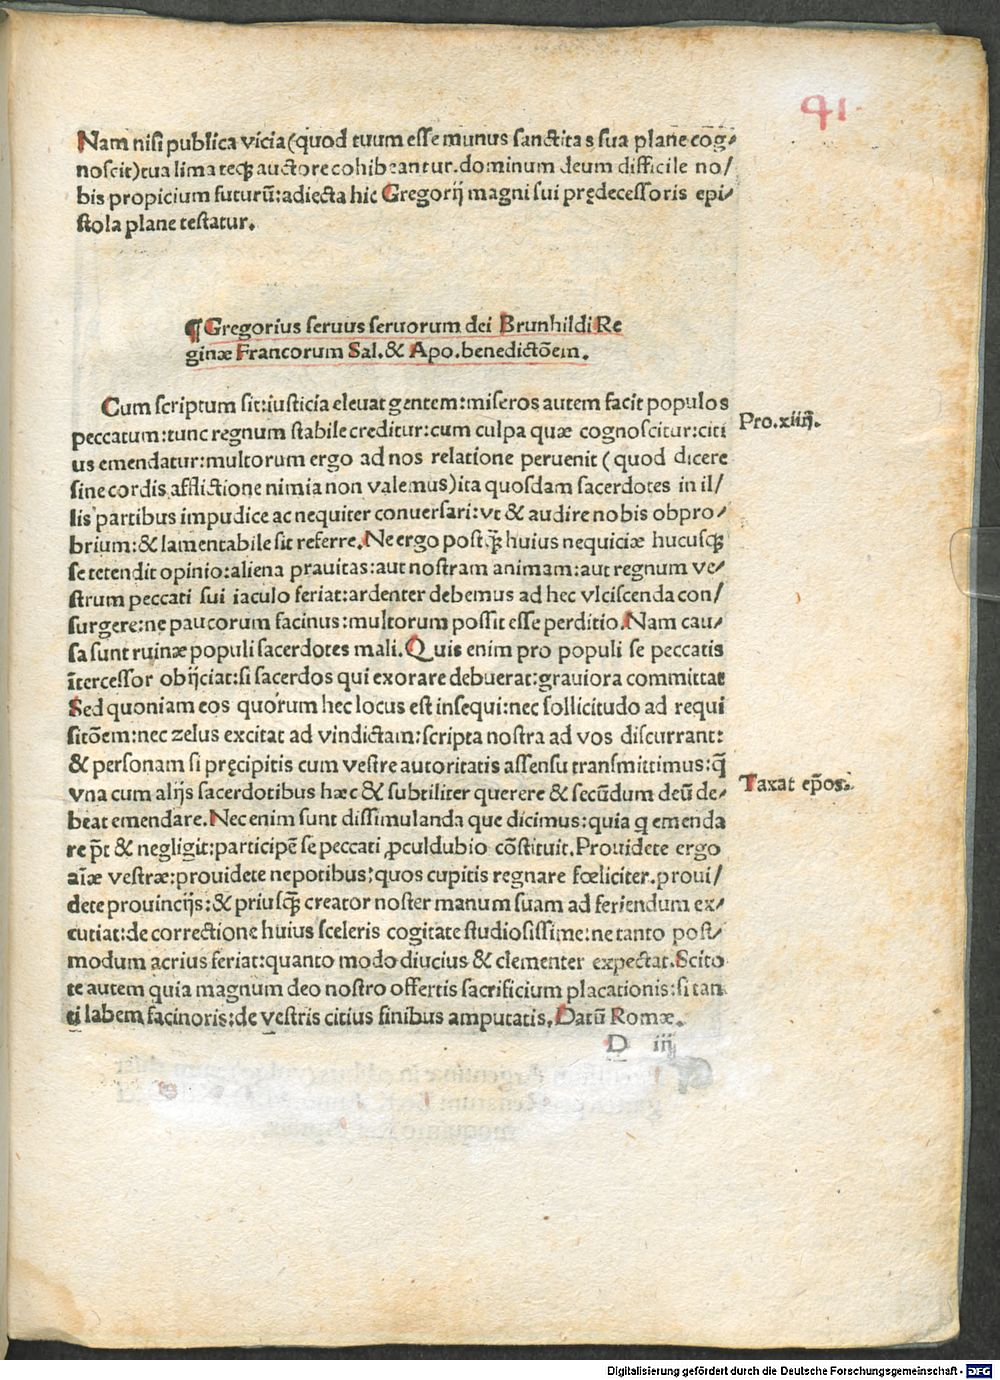 41.
Nam nisi publica vicia (quod tuum esse munus sanctitas sua plane cōg⸗
noscit) tua lima teqȝ auctore cohibeantur. dominum deum difficile no/
bis propicium futurū: adiecta hic Gregorij magni sui pręcessoris epi⸗
stola plane testatur.
¶ Gregorius seruus seruorum dei Brunhildi Re
ginæ Francorum Sal. & Apo. benedictōem.
Cum scriptum sit: iusticia eleuat gentem: miseros autem facit populos
Pro. xiiij.
peccatum: tunc regnum stabile creditur: cum culpa quæ cognoscitur: citi
us emendatur: multorum ergo ad nos relatione peruenit (quod dicere
sine cordis afflictione nimia non valemus) ita quosdam sacerdotes in il/
lis partibus impudice ac nequiter conuersari: vt & audire nobis obpro⸗
brium: & lamentabile sit referre. Ne ergo postqȝ̄ huius nequiciæ hucusqȝ
se tetendit opinio: aliena prauitas: aut nostram animam: aut regnum ve⸗
strum peccati sui iaculo feriat: ardenter debemus ad hec vlciscenda con/
surgere: ne paucorum facinus: multorum possit esse perditio. Nam cau⸗
sa sunt ruinæ populi sacerdotes mali. Quis enim pro populi se peccatis
ītercessor obijciat: si sacerdos qui exorare debuerat: grauiora committat
Sed quoniam eos quorum hec locus est insequi: nec sollicitudo ad requi
sitōem: nec zelus excitat ad vindictam: scripta nostra ad vos discurrant:
& personam si pręcipitis cum vestre autoritatis assensu transmittimus: q̄
Taxat ep̄os.
vna cum alijs sacerdotibus hæc & subtiliter querere & secūdum deū de⸗
beat emendare. Nec enim sunt dissimulanda que dicimus: quia q emenda
re p̄t & negligit: participē se peccati ꝓculdubio cōstituit. Prouidete ergo
aīæ vestræ: prouidete nepotibus: quos cupitis regnare fœliciter. proui/
dete prouincijs: & priusqȝ̄ creator noster manum suam ad feriendum ex⸗
cutiat: de correctione huius sceleris cogitate studiosissime: ne tanto post⸗
modum acrius feriat: quanto modo diucius & clementer expectat. Scito
te autem quia magnum deo nostro offertis sacrificium placationis: si tan
ti labem facinoris: de vestris citius finibus amputatis. Datū Romæ.
D iij
Digitalisierung gefördert durch die Deutsche Forschungsgemeinschaft - DFG